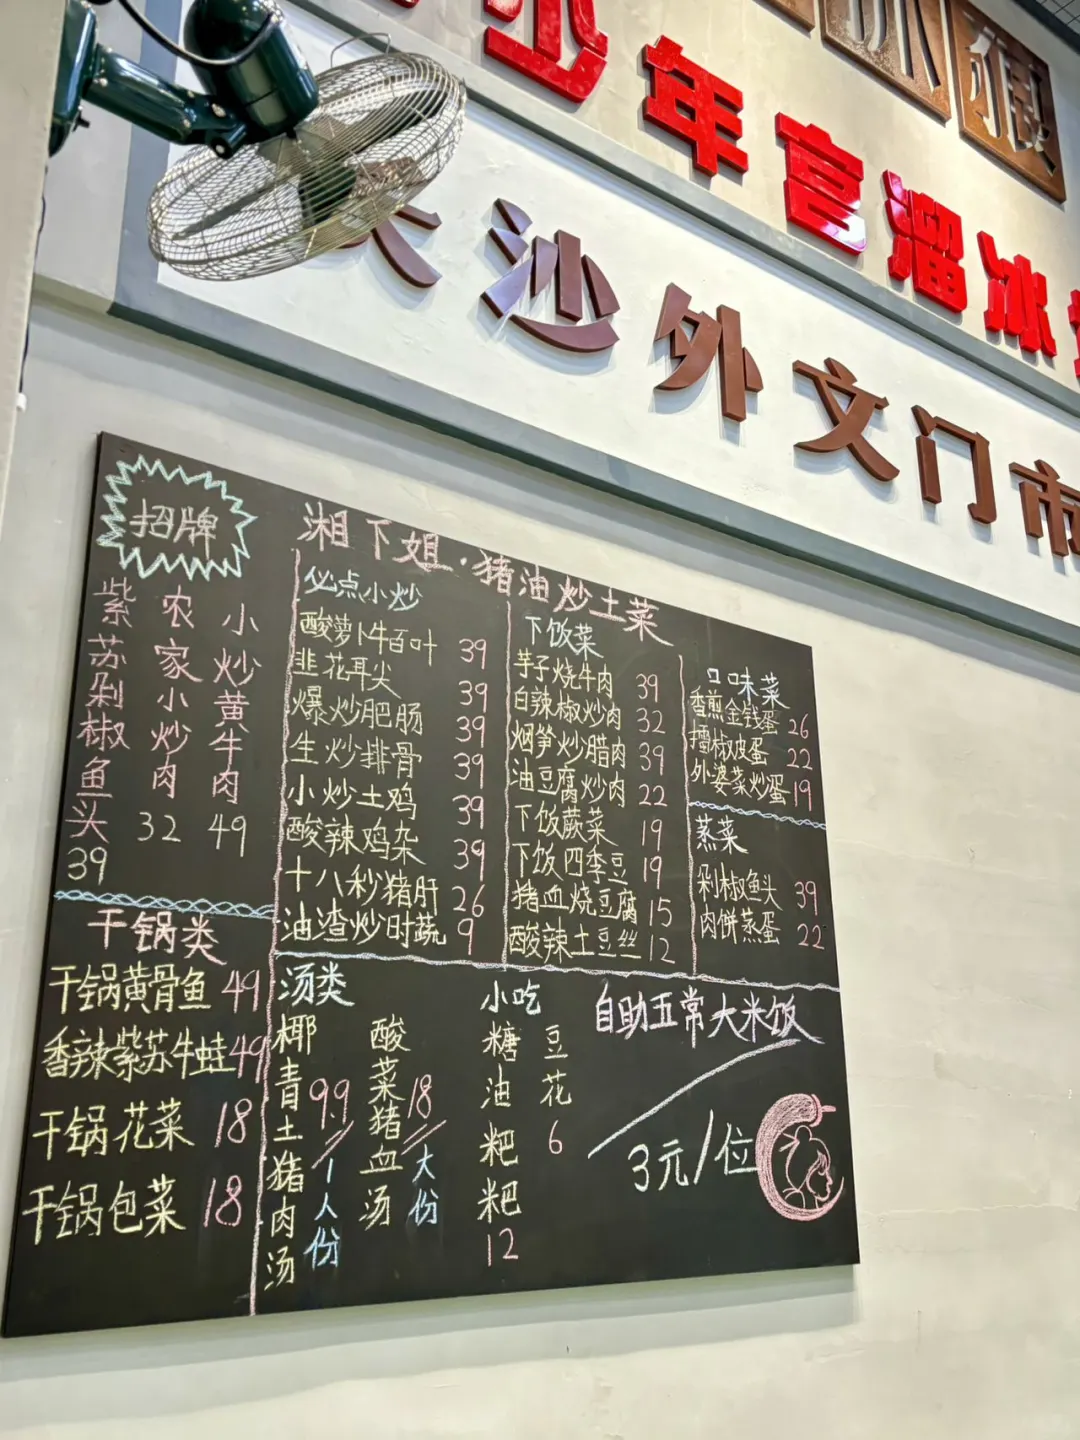 少年宫溜冰
长沙外文门市
招牌
紫苏剁椒鱼头
39
农家小炒肉
32
小炒黄牛肉
49
干锅类
干锅黄骨鱼 49
香辣紫苏牛蛙 49
干锅花菜 18
干锅包菜 18
湘下姐·猪油炒土菜
必点小炒
酸萝卜牛百叶 39
韭花耳尖 39
爆炒肥肠 39
生炒排骨 39
小炒土鸡 39
酸辣鸡杂 39
十八秒猪肝 26
油渣炒时蔬 9
下饭菜
芋子烧牛肉 39
白辣椒炒肉 32
烟笋炒腊肉 39
油豆腐炒肉 22
下饭蕨菜 19
下饭四季豆 19
猪血烧豆腐 15
酸辣土豆丝 12
口味菜
香煎金钱蛋 26
擂椒皮蛋 22
外婆菜炒蛋 19
蒸菜
剁椒鱼头 39
肉饼蒸蛋 22
汤类
椰青土猪肉汤
9.9//1人份
酸菜猪血汤
18//大份
小吃
糖油粑粑
12
豆花
6
自助五常大米饭
3元/位